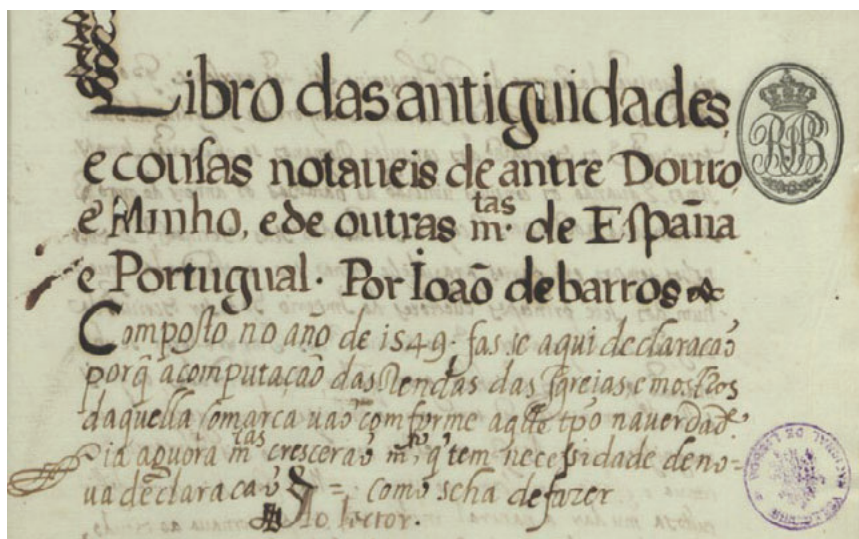 Libro das antiguidades,
e cousas notaueis de antre Douro,
e Minho, e de outras m.tas de España
e Portugual. Por Ioaõ de barros
Composto no año de 1549. fas se aqui declaracaõ
porq̃ a computaçaõ das Rendas das Igreias e mostros
daquella comarca uaõ comforme aq̃lle tpõ na uerdade
ia aguora m.tas cresceraõ m.to, q̃ tem necessidade de no=
ua declaracaõ & = como se ha de fazer
Ao lector.